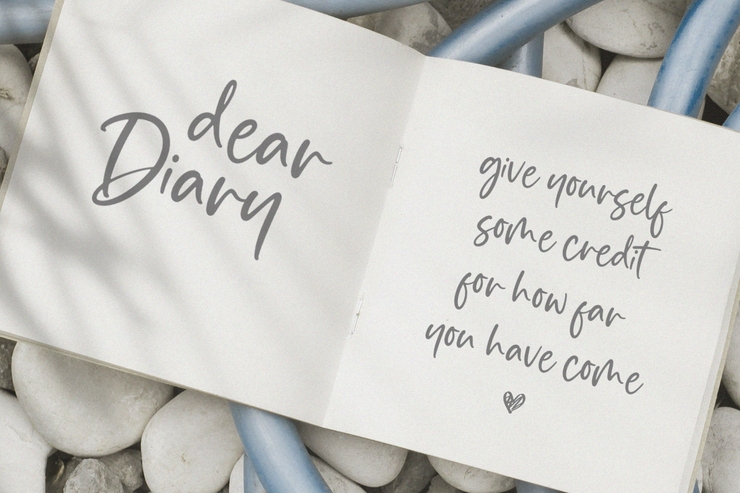 dear
Diary
give yourself
some credit
for how far
you have come